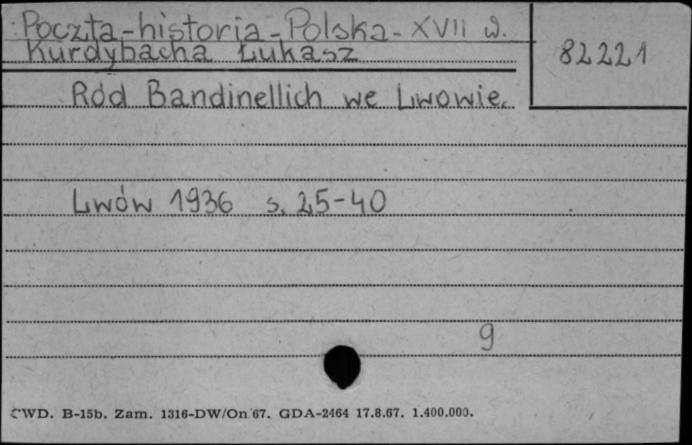 Poczta-historja-Polska-XVII w.
Kurdybacha Łukasz
82221
Ród Bandinellich we Lwowie.
Lwów 1936 s. 25-40
9
CWD. B-15b. Zam. 1316-DW/On 67. GDA-2464 17.8.67. 1.400.000.